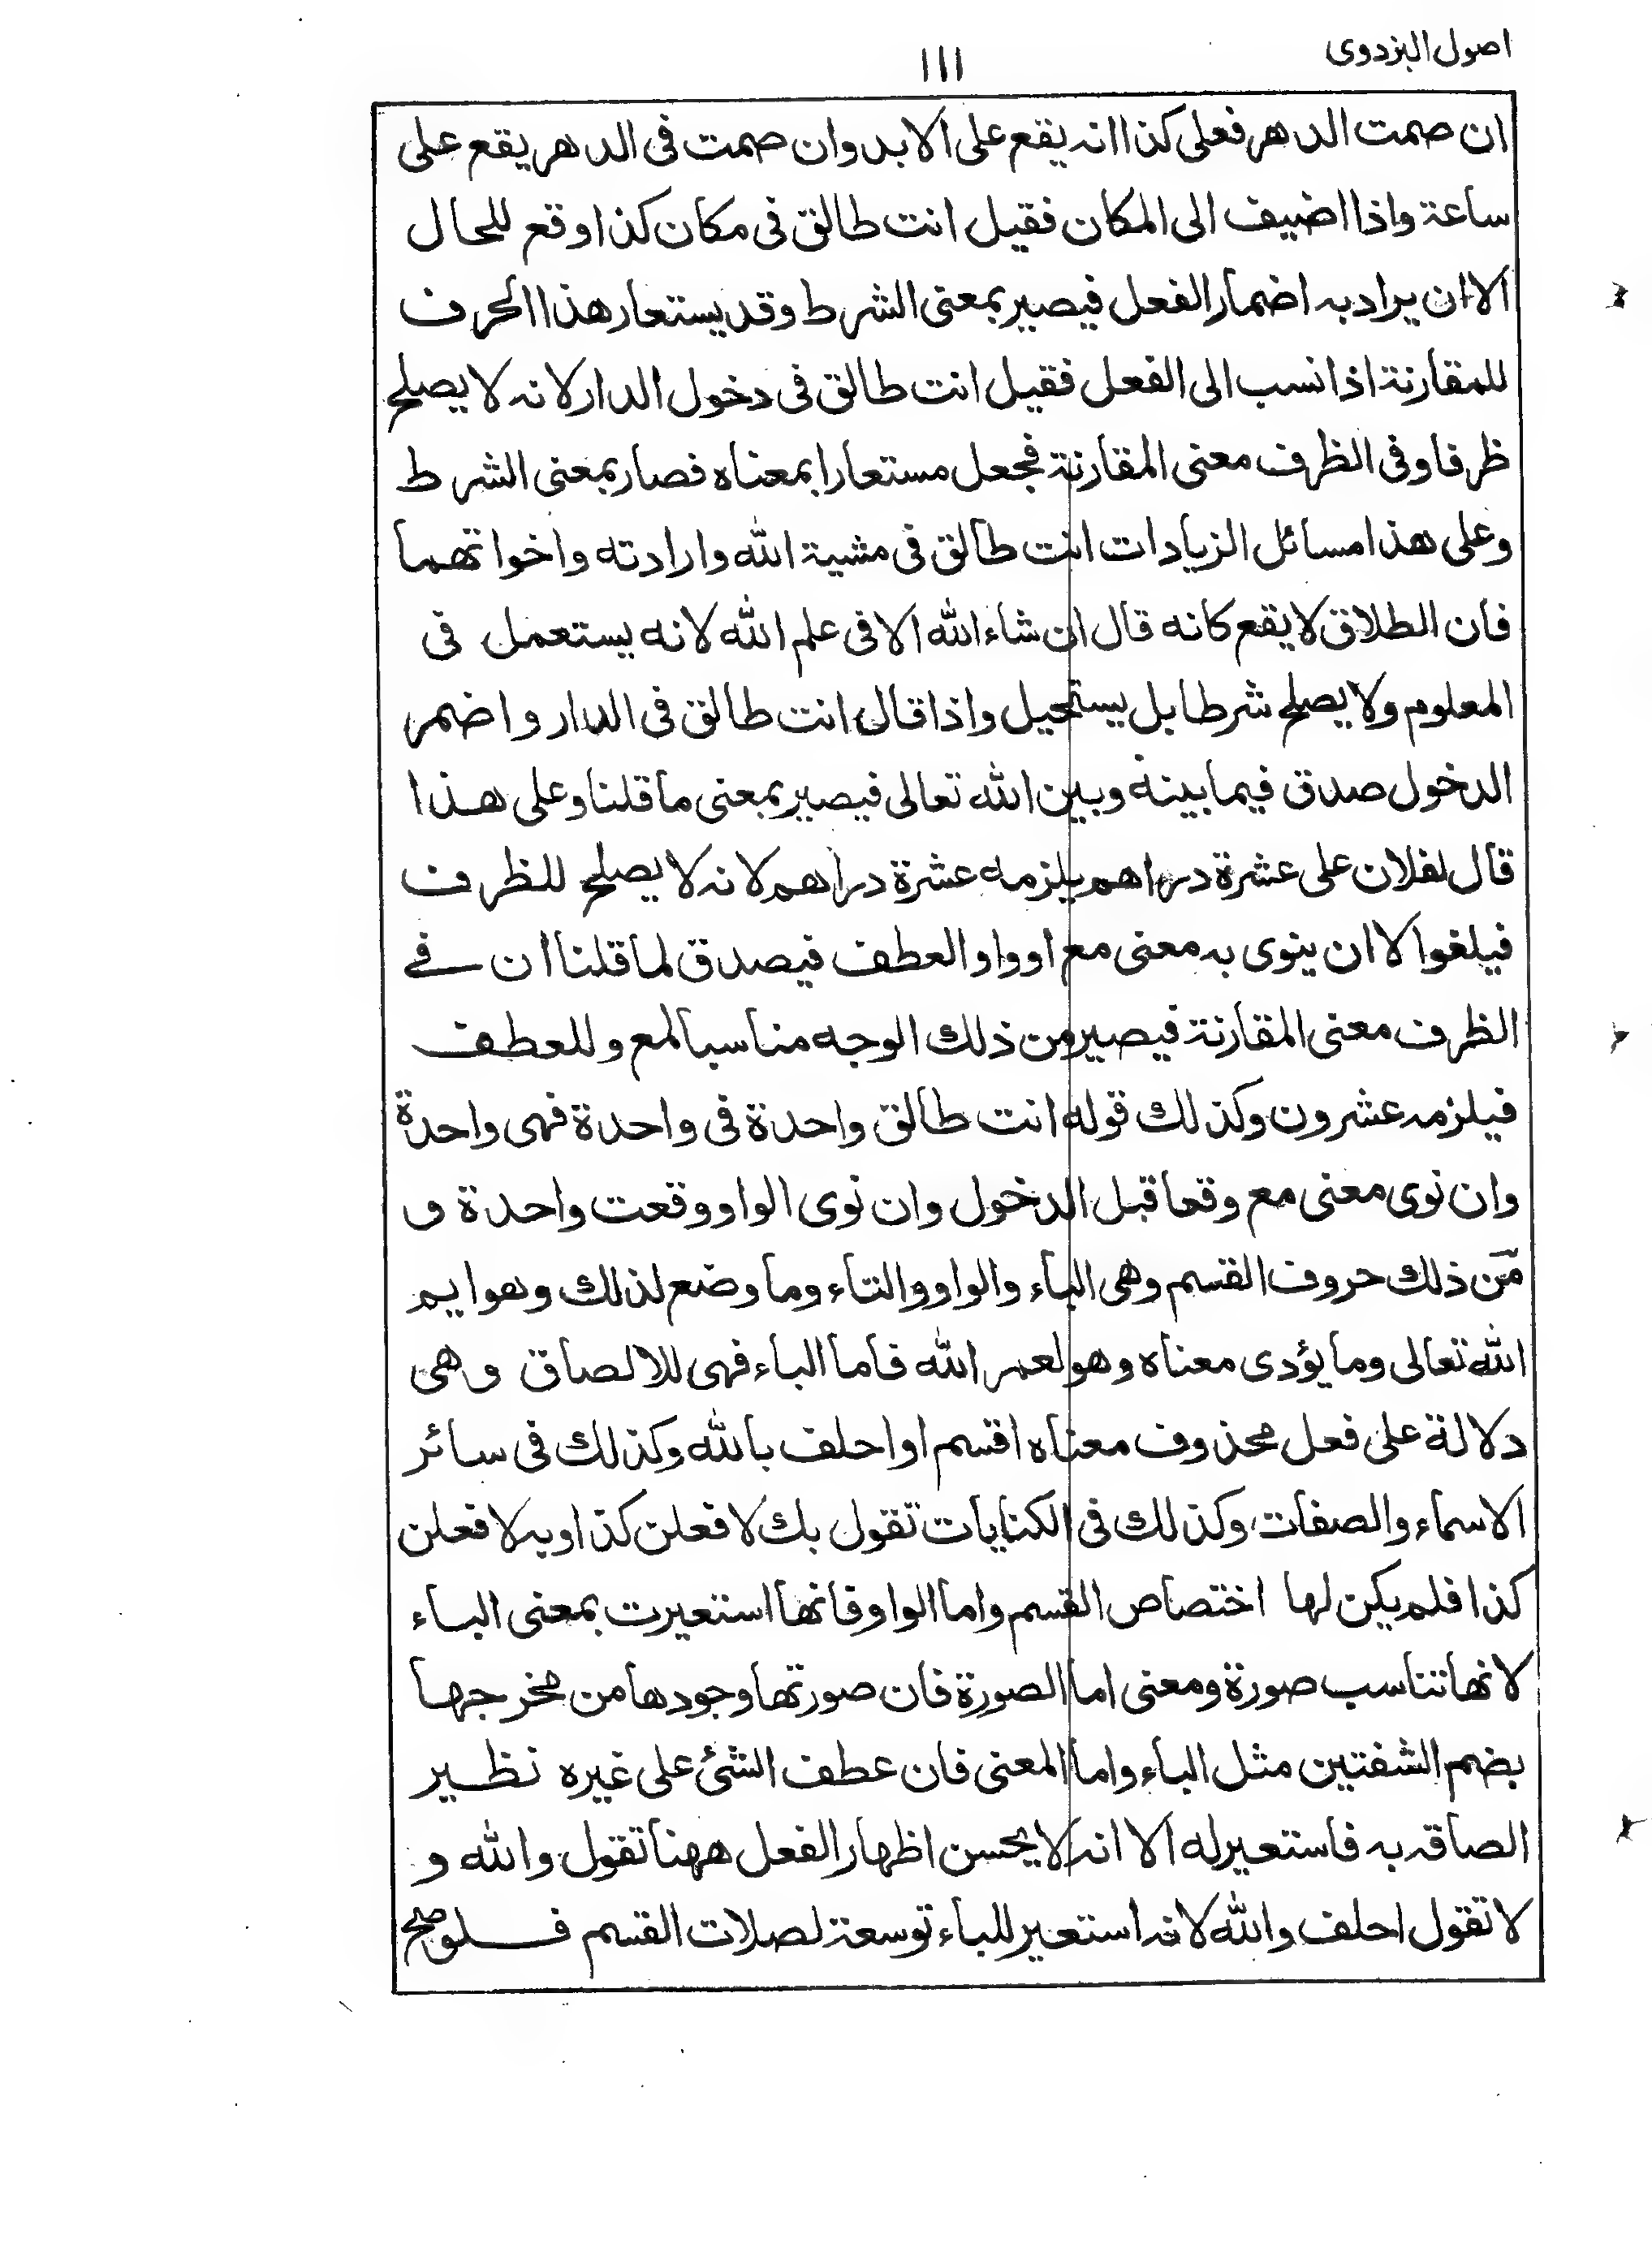 اصول البزدوى
١١١
ان صمت الدهر فعلى كذا انه يقع على الابد وان صمت فى الدهر يقع على
ساعة واذا اضيف الى المكان فقيل انت طالق فى مكان كذا وقع للحال
الا ان يراد به اضمار الفعل فيصير بمعنى الشرط وقد يستعار هذا الحرف
للمقارنة اذا نسب الى الفعل فقيل انت طالق فى دخول الدار لانه لا يصلح
ظرفا وفى الظرف معنى المقارنة فجعل مستعارا بمعناه فصار بمعنى الشرط
وعلى هذا مسائل الزيادات انت طالق فى مشية الله وارادته واخواتهما
فان الطلاق لا يقع كانه قال ان شاء الله الا فى علم الله لانه يستعمل فى
المعلوم ولا يصلح شرطا بل يستحيل واذا قال انت طالق فى الدار واضمر
الدخول صدق فيما بينه وبين الله تعالى فيصير بمعنى ما قلنا وعلى هذا
قال لفلان على عشرة دراهم يلزمه عشرة دراهم لانه لا يصلح للظرف
فيلغوا الا ان ينوى به معنى مع او واو العطف فيصدق لما قلنا ان فے
الظرف معنى المقارنة فيصير من ذلك الوجه مناسبا لمع وللعطف
فيلزمه عشرون وكذلك قوله انت طالق واحدة فى واحدة فهى واحدة
وان نوى معنى مع وقعا قبل الدخول وان نوى الواو وقعت واحدة و
من ذلك حروف القسم وهى الباء والواو والتاء وما وضع لذلك وهو ايم
الله تعالى وما يؤدى معناه وهو لعمر الله فاما الباء فهى للالصاق وهى
دلالة على فعل محذوف معناه اقسم او احلف بالله وكذلك فى سائر
الاسماء والصفات وكذلك فى الكنايات تقول بك لافعلن كذا وبه لافعلن
كذا فلم يكن لها اختصاص القسم واما الواو فانها استعيرت بمعنى الباء
لانها تناسب صورة ومعنى اما الصورة فان صورتها وجودها من مخرجها
بضم الشفتين مثل الباء واما المعنى فان عطف الشئ على غيره نظير
الصاقه به فاستعير له الا انه لا يحسن اظهار الفعل ههنا تقول والله و
لا تقول احلف والله لانه استعير للباء توسعة لصلات القسم فلو صلح